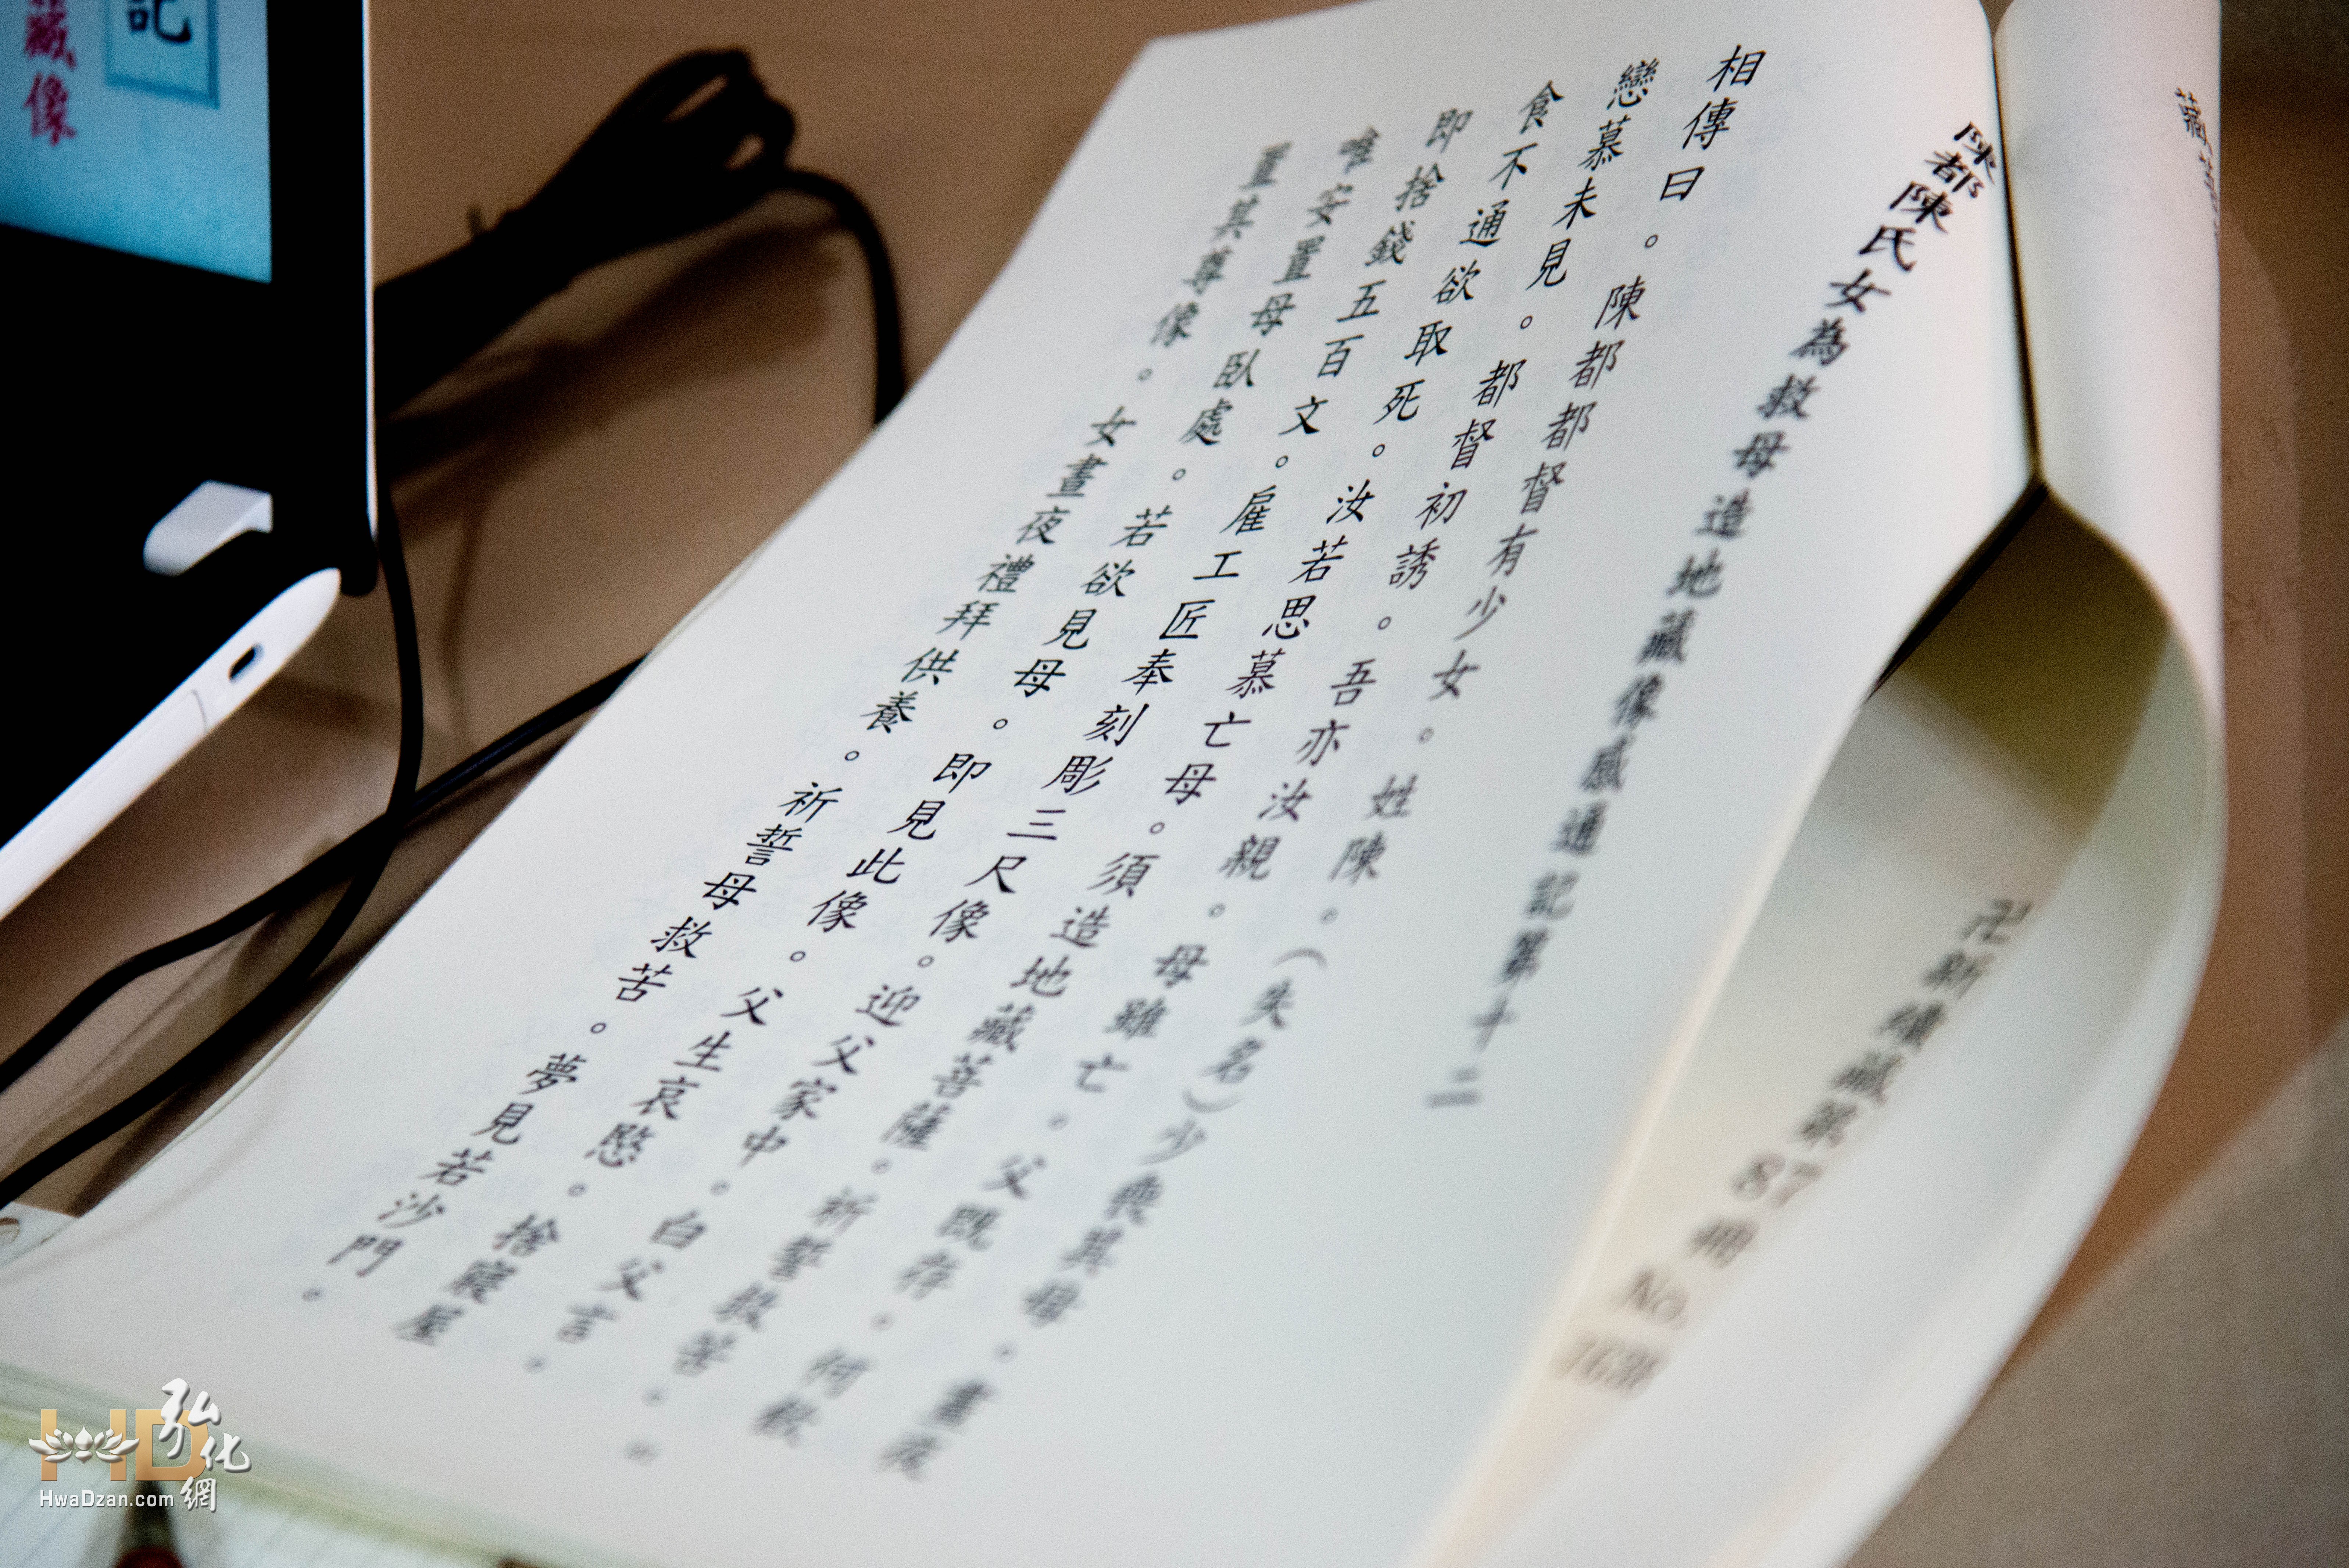 藏
陳都陳氏女為救母造地藏像感通記第十二
卍新續藏第87冊 No. 1638
相傳曰。陳都都督有少女。姓陳。(失名)少喪其母。晝夜
戀慕未見。都督初誘。吾亦汝親。母雖亡。父既存。何愁
食不通欲取死。汝若思慕亡母。須造地藏菩薩。祈誓救苦。
即捨錢五百文。雇工匠奉刻彫三尺像。迎父家中。白父言。
唯安置母臥處。若欲見母。即見此像。父生哀愍。捨寢屋
置其尊像。女晝夜禮拜供養。祈誓母救苦。夢見若沙門。
記
藏像
HD 弘化網
HwaDzan.com